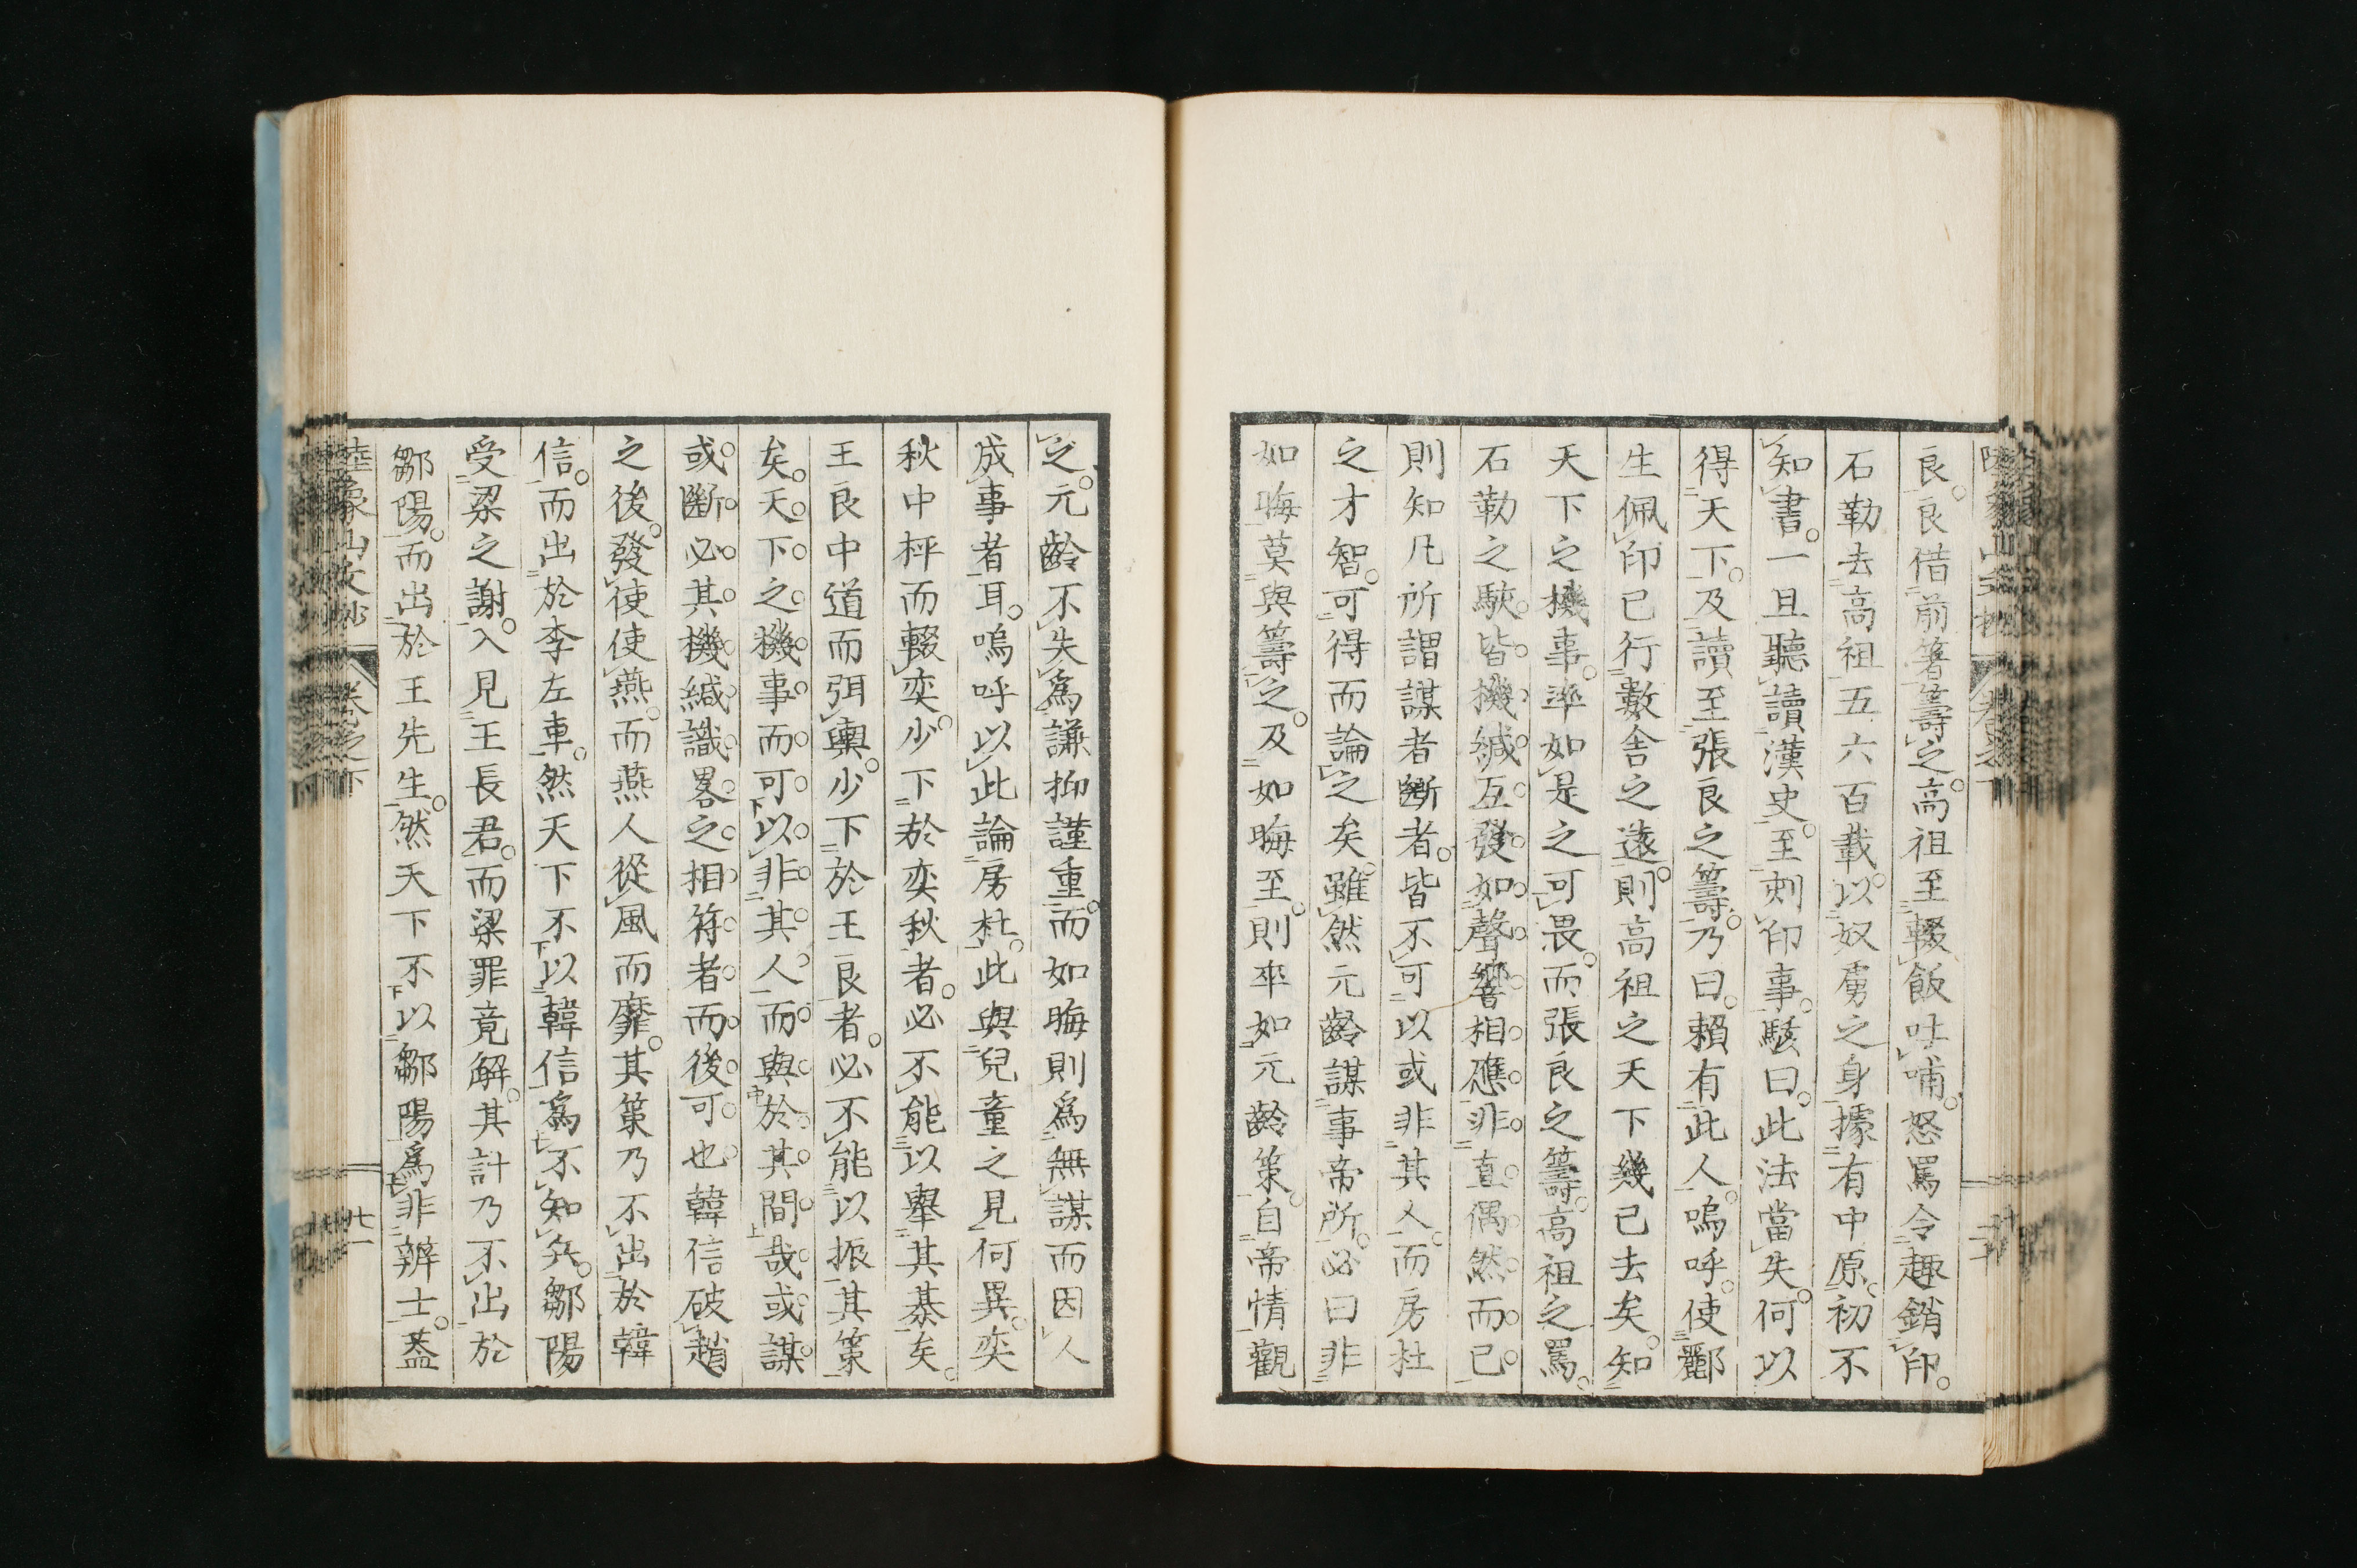 良。良借前箸籌之。高祖至輟飯吐哺。怒罵令趣銷印。
石勒去高祖五六百載。以奴虜之身據有中原。初不
知書。一旦聽讀漢史。至刺印事。駭曰。此法當失。何以
得天下。及讀至張良之籌。乃曰。賴有此人。嗚呼。使酈
生佩印已行數舍之遠。則高祖之天下幾已去矣。知
天下之機事。率如是之可畏。而張良之籌。高祖之罵。
石勒之駭。皆機緘互發。如聲響相應。非直偶然而已。
則知凡所謂謀者斷者。皆不可以或非其人。而房杜
之才智。可得而論之矣。雖然元齡謀事帝所。必曰非
如晦莫與籌之。及如晦至。則卒如元齡策。自帝情觀
之。元齡不失爲謙抑謹重。而如晦則爲無謀而因人
成事者耳。嗚呼以此論房杜。此與兒童之見何異。奕
秋中枰而輟奕。少下於奕秋者。必不能以舉其棊矣。
王良中道而弭輿。少下於王良者。必不能以振其策
矣。天下之機事而可以非其人而與於其間哉。或謀
或斷必其機緘識畧之相符者而後可也韓信破趙
之後。發使使燕。而燕人從風而靡。其策乃不出於韓
信。而出於李左車。然天下不以韓信爲不知兵。鄒陽
受梁之謝。入見王長君。而梁罪竟解。其計乃不出於
鄒陽。而出於王先生。然天下不以鄒陽爲非辨士。蓋
陸象山文抄 卷之下 廿一